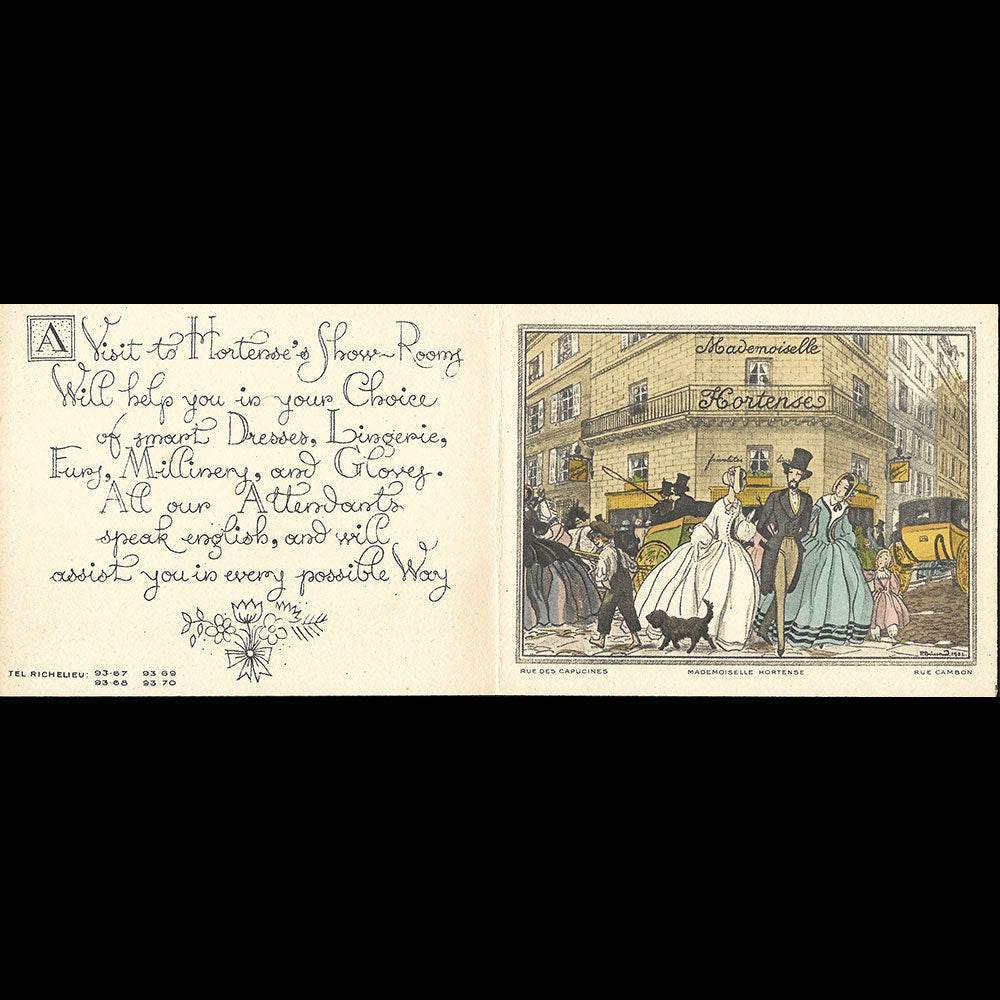 A Visit to Hortense's Show-Rooms
Will help you in your Choice
of smart Dresses, Lingerie,
Furs, Millinery, and Gloves.
All our Attendants
speak english, and will
assist you in every possible Way
TEL RICHELIEU: 93-67 93 69
93-68 93 70
Mademoiselle
Hortense
RUE DES CAPUCINES MADEMOISELLE HORTENSE RUE CAMBON